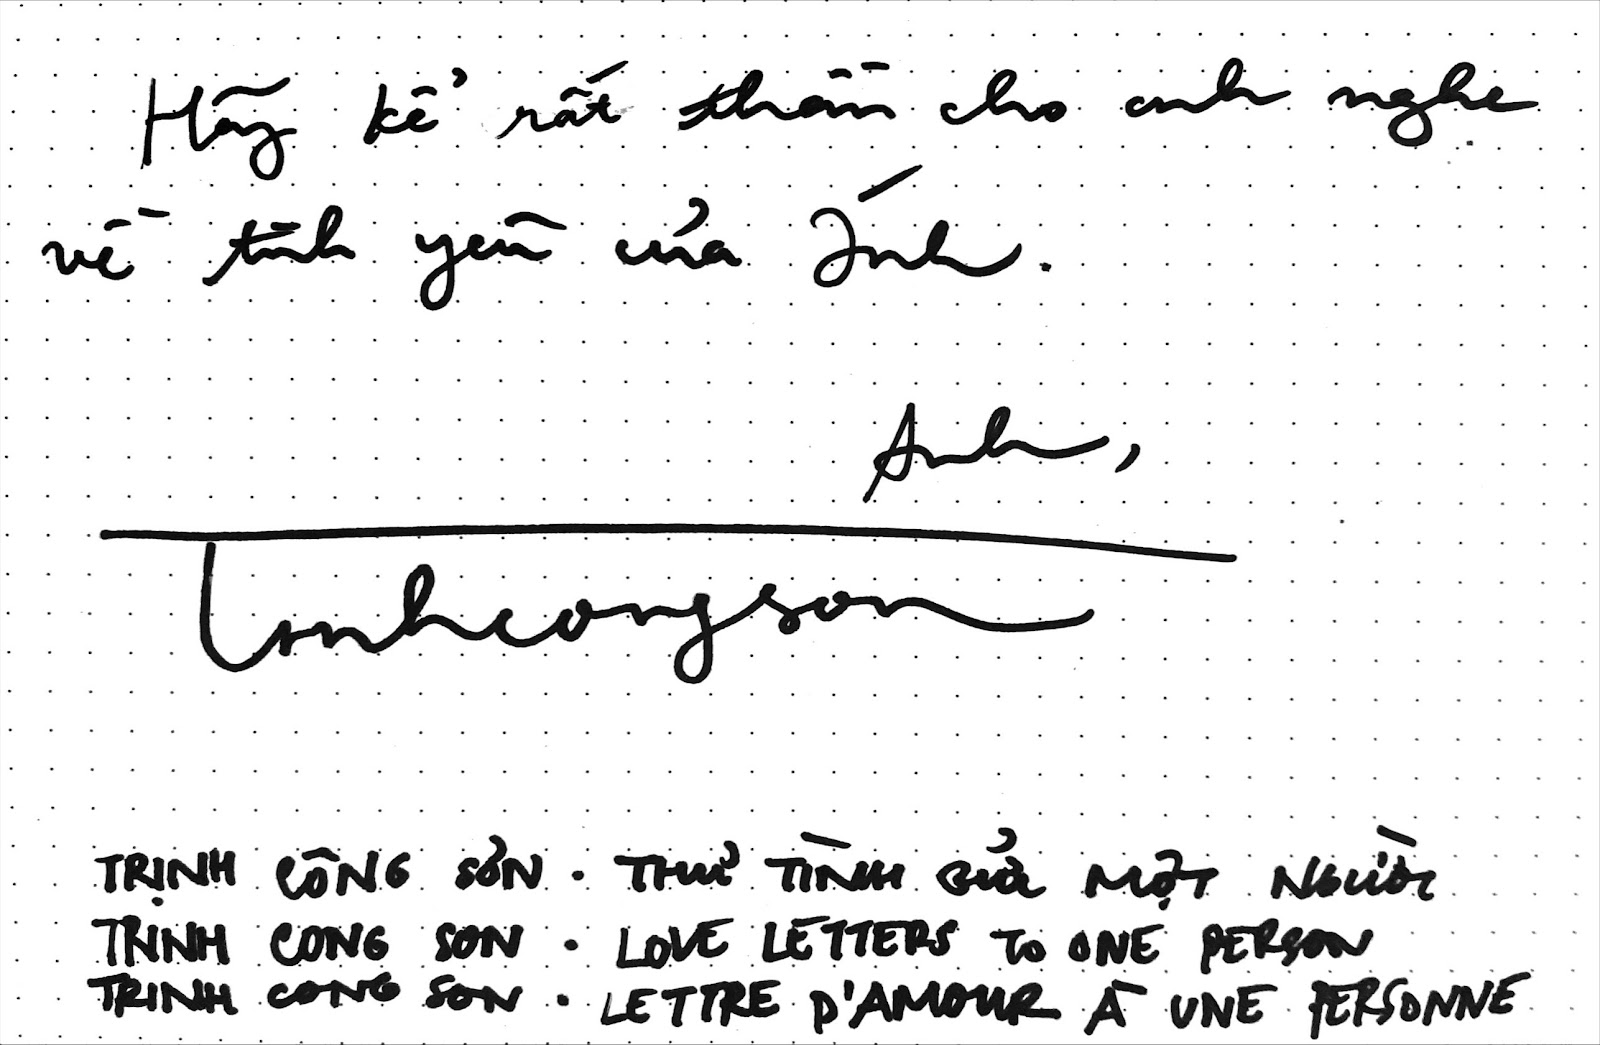 Hãy kể rất thầm cho anh nghe
về tình yêu của Ánh.
Anh,
Trinhcongson
TRỊNH CÔNG SƠN · THƯ TÌNH GỬI MỘT NGƯỜI
TRINH CONG SON · LOVE LETTERS TO ONE PERSON
TRINH CONG SON · LETTRE D'AMOUR À UNE PERSONNE